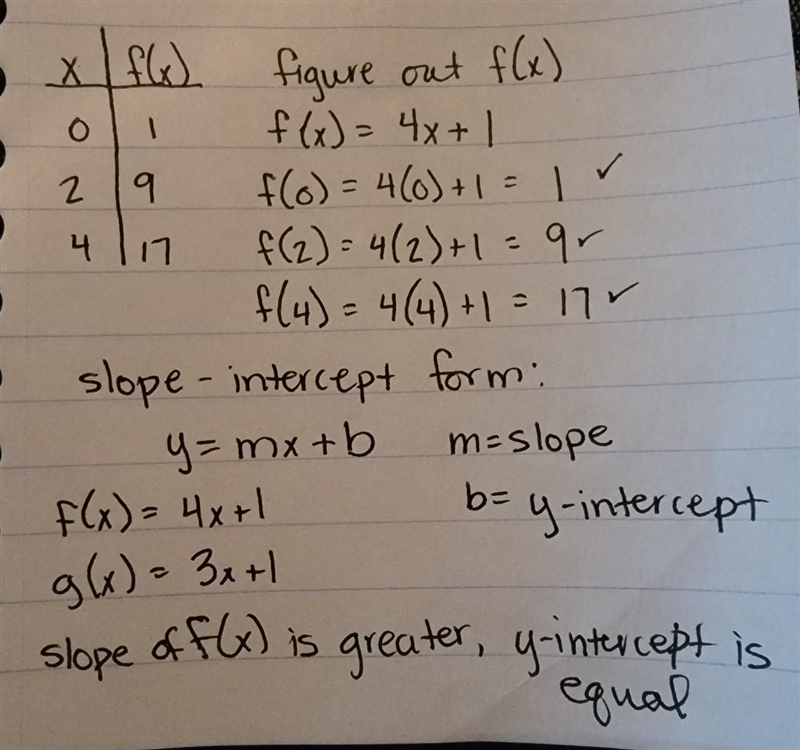 x f(x) figure out f(x)
0 1 f(x) = 4x + 1
2 9 f(0) = 4(0) + 1 = 1 ✓
4 17 f(2) = 4(2) + 1 = 9 ✓
f(4) = 4(4) + 1 = 17 ✓
slope - intercept form:
y = mx + b m = slope
f(x) = 4x + 1 b = y-intercept
g(x) = 3x + 1
slope of f(x) is greater, y-intercept is
equal